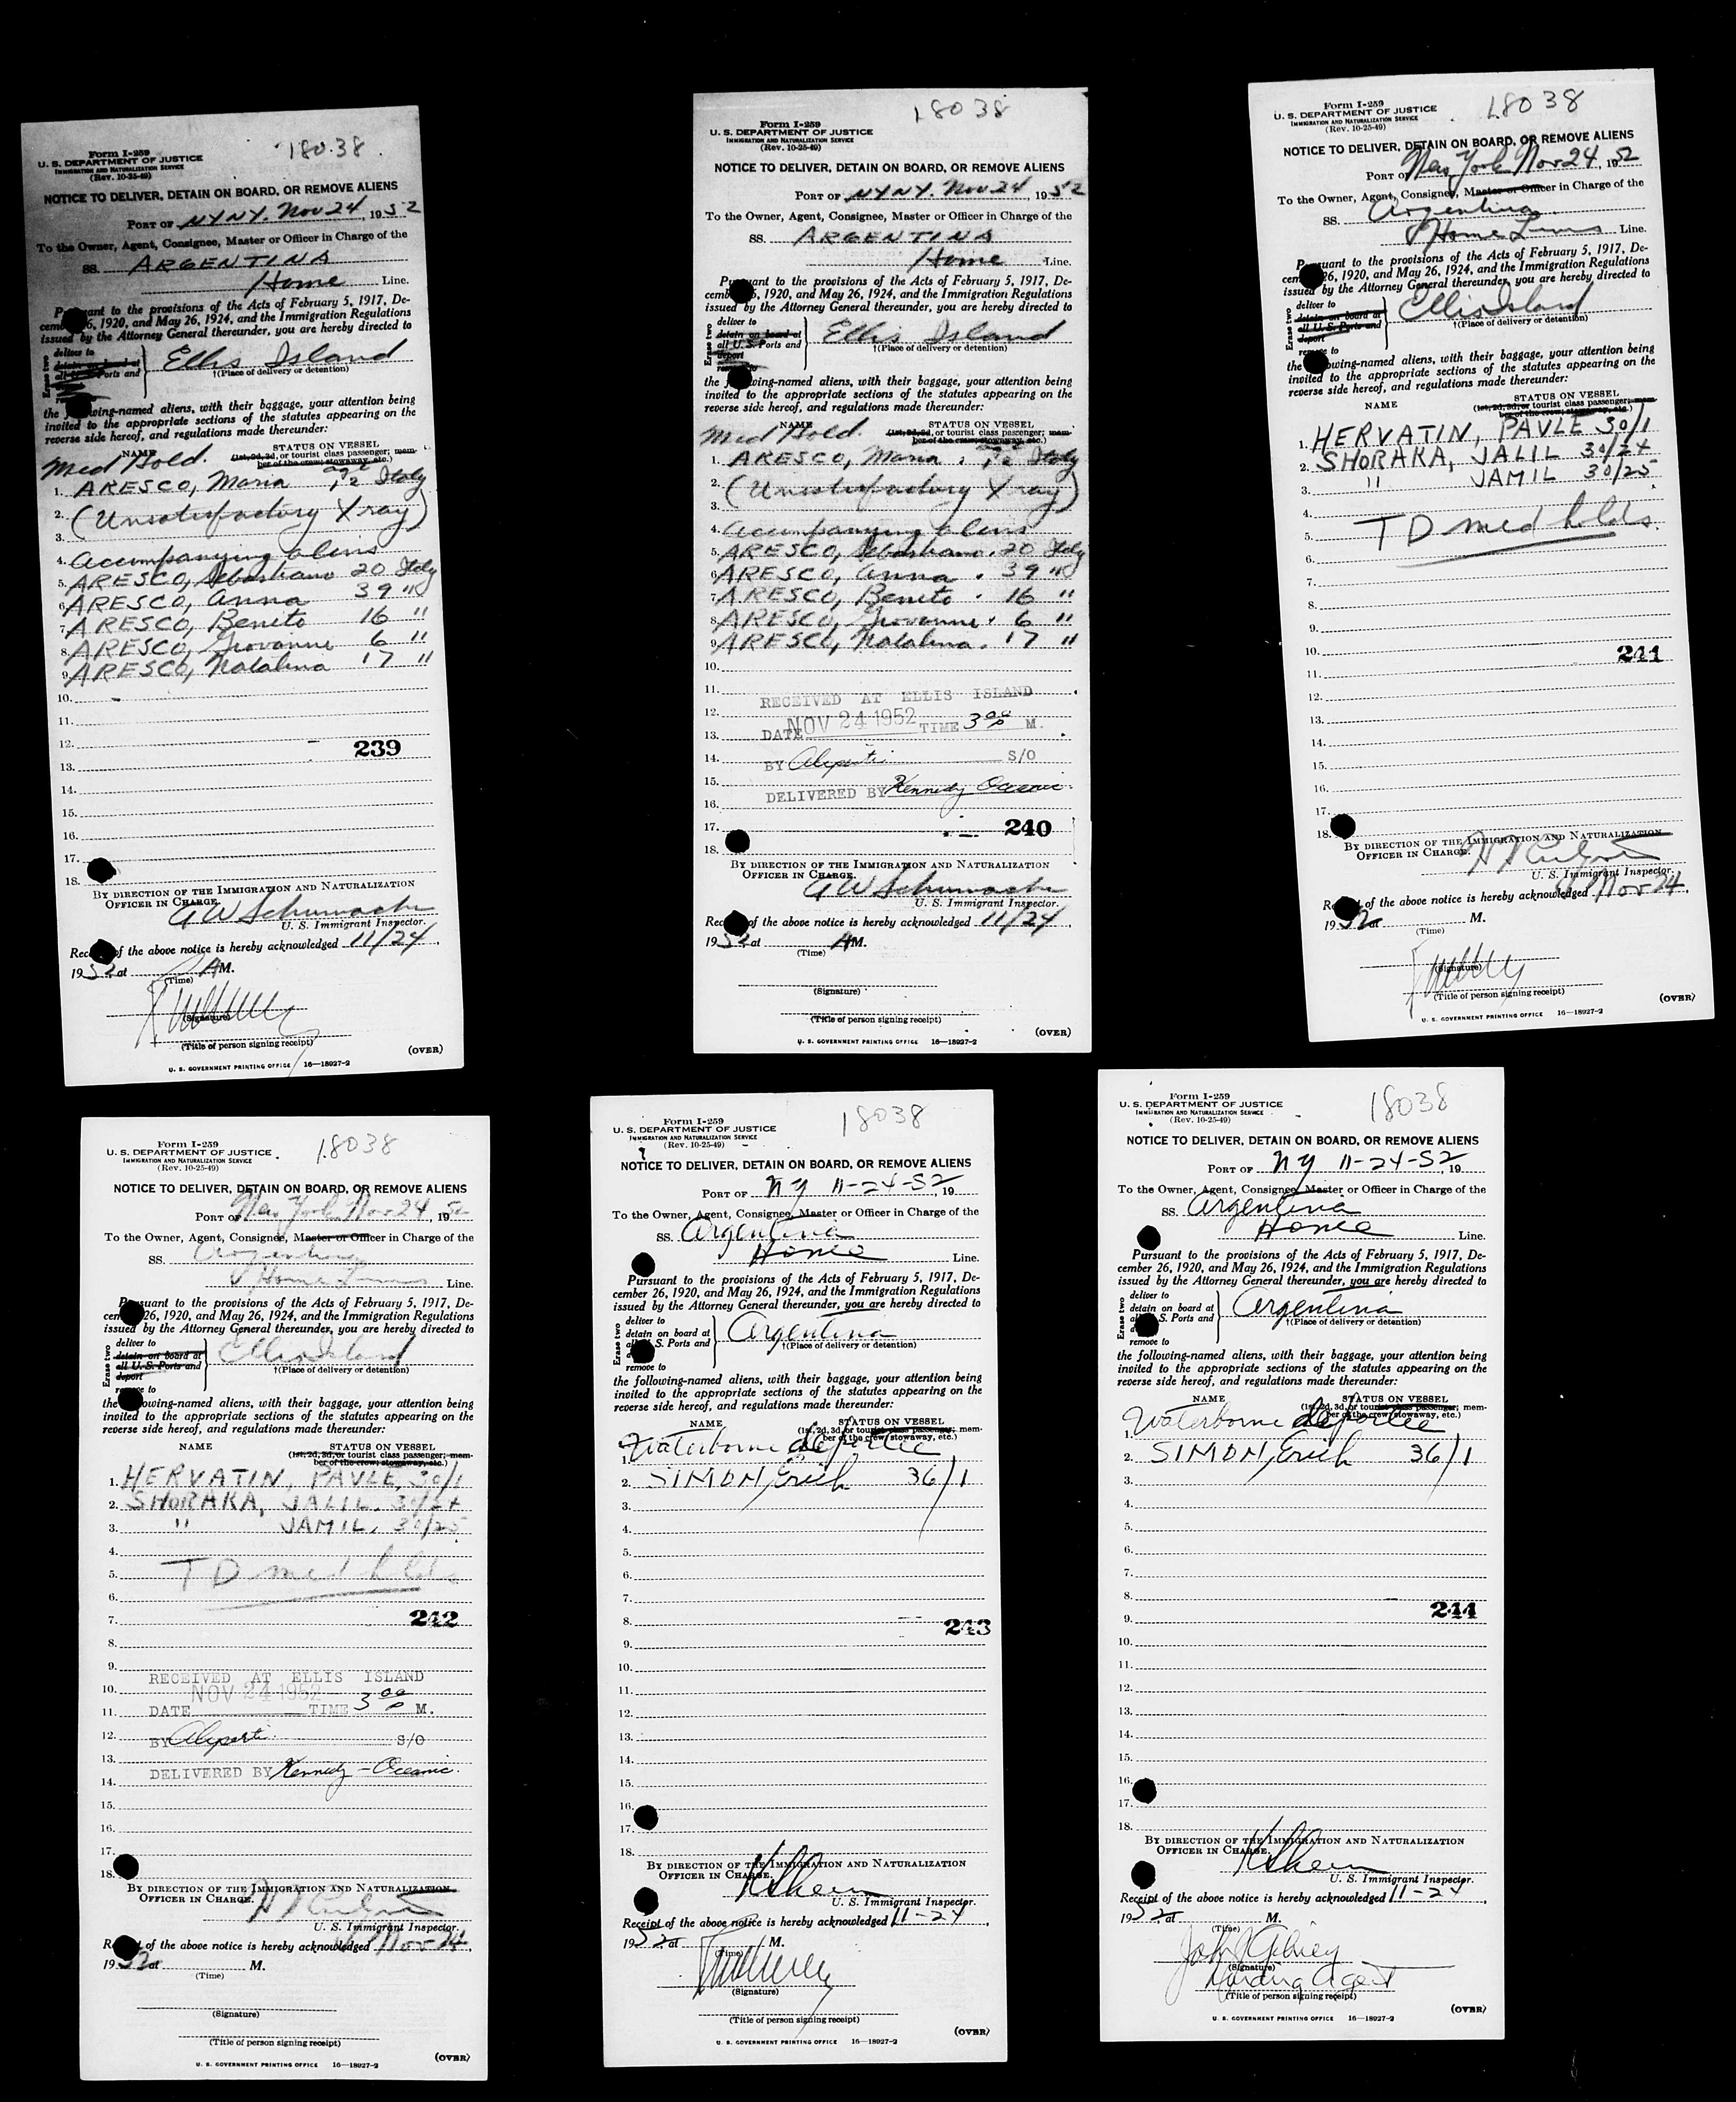 Form I-259
U. S. DEPARTMENT OF JUSTICE
IMMIGRATION AND NATURALIZATION SERVICE
(Rev. 10-25-49)
18038
NOTICE TO DELIVER, DETAIN ON BOARD, OR REMOVE ALIENS
PORT OF NYNY. Nov 24, 1952
To the Owner, Agent, Consignee, Master or Officer in Charge of the
SS. ARGENTINA
Home Line.
Pursuant to the provisions of the Acts of February 5, 1917, De-
cember 26, 1920, and May 26, 1924, and the Immigration Regulations
issued by the Attorney General thereunder, you are hereby directed to
Erase two
deliver to
detain on board at
all U. S. Ports and
Ellis Island
†(Place of delivery or detention)
the following-named aliens, with their baggage, your attention being
invited to the appropriate sections of the statutes appearing on the
reverse side hereof, and regulations made thereunder:
NAME STATUS ON VESSEL
Med Hold. (1st, 2d, 3d, or tourist class passenger; mem-
ber of the crew; stowaway, etc.)
age
1. ARESCO, Maria 12 Italy
2. (Unsatisfactory X ray)
3.
4. Accompanying aliens
5. ARESCO, Sebastiano 20 Italy
6. ARESCO, Anna 39 "
7. ARESCO, Benito 16 "
8. ARESCO, Giovanni 6 "
9. ARESCO, Natalina 17 "
10.
11.
12. 239
13.
14.
15.
16.
17.
18.
BY DIRECTION OF THE IMMIGRATION AND NATURALIZATION
OFFICER IN CHARGE.
G W Schumacher
U. S. Immigrant Inspector.
Receipt of the above notice is hereby acknowledged 11/24,
1952 at AM.
(Time)
(Signature)
(Title of person signing receipt)
(OVER)
U. S. GOVERNMENT PRINTING OFFICE 16—18927-2
Form I-259
U. S. DEPARTMENT OF JUSTICE
IMMIGRATION AND NATURALIZATION SERVICE
(Rev. 10-25-49)
18038
NOTICE TO DELIVER, DETAIN ON BOARD, OR REMOVE ALIENS
PORT OF NYNY. Nov 24, 1952
To the Owner, Agent, Consignee, Master or Officer in Charge of the
SS. ARGENTINA
Home Line.
Pursuant to the provisions of the Acts of February 5, 1917, De-
cember 26, 1920, and May 26, 1924, and the Immigration Regulations
issued by the Attorney General thereunder, you are hereby directed to
Erase two
deliver to
detain on board at
all U. S. Ports and
deport
Ellis Island
†(Place of delivery or detention)
the following-named aliens, with their baggage, your attention being
invited to the appropriate sections of the statutes appearing on the
reverse side hereof, and regulations made thereunder:
NAME STATUS ON VESSEL
Med Hold. (1st, 2d, 3d, or tourist class passenger; mem-
ber of the crew; stowaway, etc.)
age
1. ARESCO, Maria . 12 Italy
2. (Unsatisfactory X ray)
3.
4. Accompanying aliens
5. ARESCO, Sebastiano . 20 Italy
6. ARESCO, Anna . 39 "
7. ARESCO, Benito . 16 "
8. ARESCO, Giovanni . 6 "
9. ARESCO, Natalina . 17 "
10.
11. RECEIVED AT ELLIS ISLAND
12.
13. DATE NOV 24 1952 TIME 3 00 P M.
14. BY Aliperti S/O
15.
16. DELIVERED BY Kennedy Oceanic.
17. 240
18.
BY DIRECTION OF THE IMMIGRATION AND NATURALIZATION
OFFICER IN CHARGE.
G W Schumacher
U. S. Immigrant Inspector.
Receipt of the above notice is hereby acknowledged 11/24,
1952 at AM.
(Time)
(Signature)
(Title of person signing receipt)
(OVER)
U. S. GOVERNMENT PRINTING OFFICE 16—18927-2
Form I-259
U. S. DEPARTMENT OF JUSTICE
IMMIGRATION AND NATURALIZATION SERVICE
(Rev. 10-25-49)
18038
NOTICE TO DELIVER, DETAIN ON BOARD, OR REMOVE ALIENS
PORT OF New York Nov 24, 1952
To the Owner, Agent, Consignee, Master or Officer in Charge of the
SS. Argentina
Home Lines Line.
Pursuant to the provisions of the Acts of February 5, 1917, De-
cember 26, 1920, and May 26, 1924, and the Immigration Regulations
issued by the Attorney General thereunder, you are hereby directed to
Erase two
deliver to
detain on board at
all U. S. Ports and
deport
remove to
Ellis Island
†(Place of delivery or detention)
the following-named aliens, with their baggage, your attention being
invited to the appropriate sections of the statutes appearing on the
reverse side hereof, and regulations made thereunder:
NAME STATUS ON VESSEL
(1st, 2d, 3d, or tourist class passenger; mem-
ber of the crew; stowaway, etc.)
1. HERVATIN, PAVLE 30/1
2. SHORAKA, JALIL 30/24
3. " JAMIL 30/25
4.
5. TD med holds.
6.
7.
8.
9.
10. 241
11.
12.
13.
14.
15.
16.
17.
18.
BY DIRECTION OF THE IMMIGRATION AND NATURALIZATION
OFFICER IN CHARGE.
U. S. Immigrant Inspector.
Receipt of the above notice is hereby acknowledged Nov 24,
1952 at M.
(Time)
(Signature)
(Title of person signing receipt)
(OVER)
U. S. GOVERNMENT PRINTING OFFICE 16—18927-2
Form I-259
U. S. DEPARTMENT OF JUSTICE
IMMIGRATION AND NATURALIZATION SERVICE
(Rev. 10-25-49)
18038
NOTICE TO DELIVER, DETAIN ON BOARD, OR REMOVE ALIENS
PORT OF New York Nov 24, 1952
To the Owner, Agent, Consignee, Master or Officer in Charge of the
SS. Argentina
Home Lines Line.
Pursuant to the provisions of the Acts of February 5, 1917, De-
cember 26, 1920, and May 26, 1924, and the Immigration Regulations
issued by the Attorney General thereunder, you are hereby directed to
Erase two
deliver to
detain on board at
all U. S. Ports and
deport
remove to
Ellis Island
†(Place of delivery or detention)
the following-named aliens, with their baggage, your attention being
invited to the appropriate sections of the statutes appearing on the
reverse side hereof, and regulations made thereunder:
NAME STATUS ON VESSEL
(1st, 2d, 3d, or tourist class passenger; mem-
ber of the crew; stowaway, etc.)
1. HERVATIN, PAVLE, 30/1
2. SHORAKA, JALIL. 30/24
3. " JAMIL, 30/25
4.
5. TD med holds
6.
7. 242
8.
9. RECEIVED AT ELLIS ISLAND
10. NOV 24 1952
11. DATE TIME 3 00 P M.
12. BY Aliperti S/O
13.
14. DELIVERED BY Kennedy - Oceanic.
15.
16.
17.
18.
BY DIRECTION OF THE IMMIGRATION AND NATURALIZATION
OFFICER IN CHARGE.
U. S. Immigrant Inspector.
Receipt of the above notice is hereby acknowledged Nov 24,
1952 at M.
(Time)
(Signature)
(Title of person signing receipt)
(OVER)
U. S. GOVERNMENT PRINTING OFFICE 16—18927-2
Form I-259
U. S. DEPARTMENT OF JUSTICE
IMMIGRATION AND NATURALIZATION SERVICE
(Rev. 10-25-49)
18038
NOTICE TO DELIVER, DETAIN ON BOARD, OR REMOVE ALIENS
PORT OF NY 11-24-52, 19
To the Owner, Agent, Consignee, Master or Officer in Charge of the
SS. Argentina
Home Line.
Pursuant to the provisions of the Acts of February 5, 1917, De-
cember 26, 1920, and May 26, 1924, and the Immigration Regulations
issued by the Attorney General thereunder, you are hereby directed to
Erase two
deliver to
detain on board at
all U. S. Ports and
remove to
Argentina
†(Place of delivery or detention)
the following-named aliens, with their baggage, your attention being
invited to the appropriate sections of the statutes appearing on the
reverse side hereof, and regulations made thereunder:
NAME STATUS ON VESSEL
(1st, 2d, 3d, or tourist class passenger; mem-
ber of the crew, stowaway, etc.)
1. Waterborne deportee
2. SIMON, Erich 36/1
3.
4.
5.
6.
7.
8. 243
9.
10.
11.
12.
13.
14.
15.
16.
17.
18.
BY DIRECTION OF THE IMMIGRATION AND NATURALIZATION
OFFICER IN CHARGE.
U. S. Immigrant Inspector.
Receipt of the above notice is hereby acknowledged 11-24,
1952 at M.
(Time)
(Signature)
(Title of person signing receipt)
(OVER)
U. S. GOVERNMENT PRINTING OFFICE 16—18927-2
Form I-259
U. S. DEPARTMENT OF JUSTICE
IMMIGRATION AND NATURALIZATION SERVICE
(Rev. 10-25-49)
18038
NOTICE TO DELIVER, DETAIN ON BOARD, OR REMOVE ALIENS
PORT OF NY 11-24-52, 19
To the Owner, Agent, Consignee, Master or Officer in Charge of the
SS. Argentina
Home Line.
Pursuant to the provisions of the Acts of February 5, 1917, De-
cember 26, 1920, and May 26, 1924, and the Immigration Regulations
issued by the Attorney General thereunder, you are hereby directed to
Erase two
deliver to
detain on board at
all U. S. Ports and
remove to
Argentina
†(Place of delivery or detention)
the following-named aliens, with their baggage, your attention being
invited to the appropriate sections of the statutes appearing on the
reverse side hereof, and regulations made thereunder:
NAME STATUS ON VESSEL
(1st, 2d, 3d, or tourist class passenger; mem-
ber of the crew, stowaway, etc.)
1. Waterborne deportee
2. SIMON, Erich 36/1
3.
4.
5.
6.
7.
8. 244
9.
10.
11.
12.
13.
14.
15.
16.
17.
18.
BY DIRECTION OF THE IMMIGRATION AND NATURALIZATION
OFFICER IN CHARGE.
U. S. Immigrant Inspector.
Receipt of the above notice is hereby acknowledged 11-24,
1952 at M.
(Time)
John
(Signature)
Agent
(Title of person signing receipt)
(OVER)
U. S. GOVERNMENT PRINTING OFFICE 16—18927-2